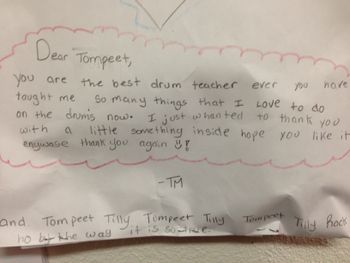 Dear Tompeet,
you are the best drum teacher ever you have
taught me so many things that I Love to do
on the drums now. I just whanted to thank you
with a little something inside hope you like it
enywase thank you again
- TM
and. Tompeet Tilly Tompeet Tilly Tompeet Tilly Rocks
ho by the way it is